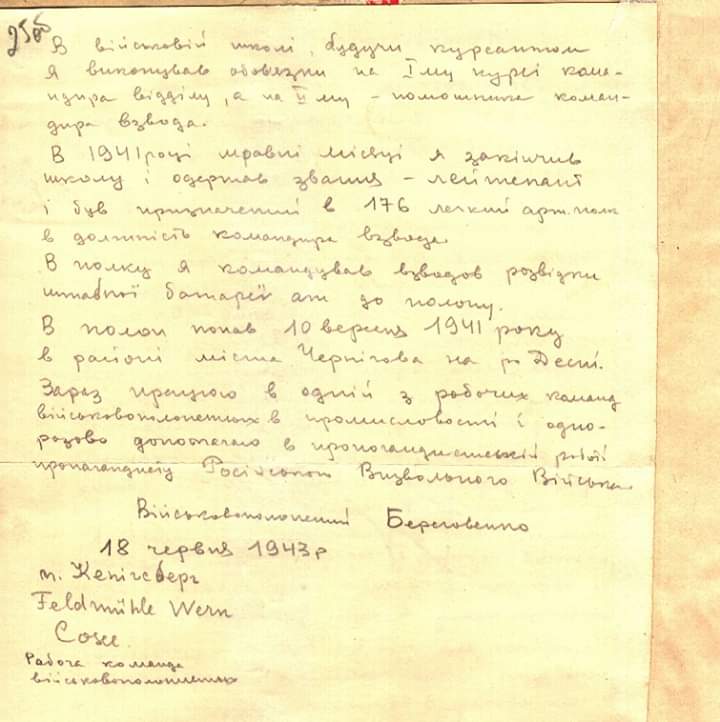 250б
В військовій школі, будучи курсантом
я виконував обовязки на Іму курсі кома-
ндира відділу, а на ІІму - помошника коман-
дира взвода.
В 1941 році травні місяці я закінчив
школу і одержав звання - лейтенант
і був призначений в 176 легкий арт. полк
в должність командира взвода.
В полку я командував взводов розвідки
штабної батареї аж до полону.
В полон попав 10 вересня 1941 року
в районі міста Чернігова на р. Десні.
Зараз працюю в одній з робочих команд
військовополонетних в промисловості і одно-
разово допомагаю в пропогандистській роботі
пропагандисту Російського Визвольного Війська.
Військовополонений Береговенко
18 червня 1943 р
м. Кенігсберг
Feldmühle Werk
Робоча команда
військовополонетних